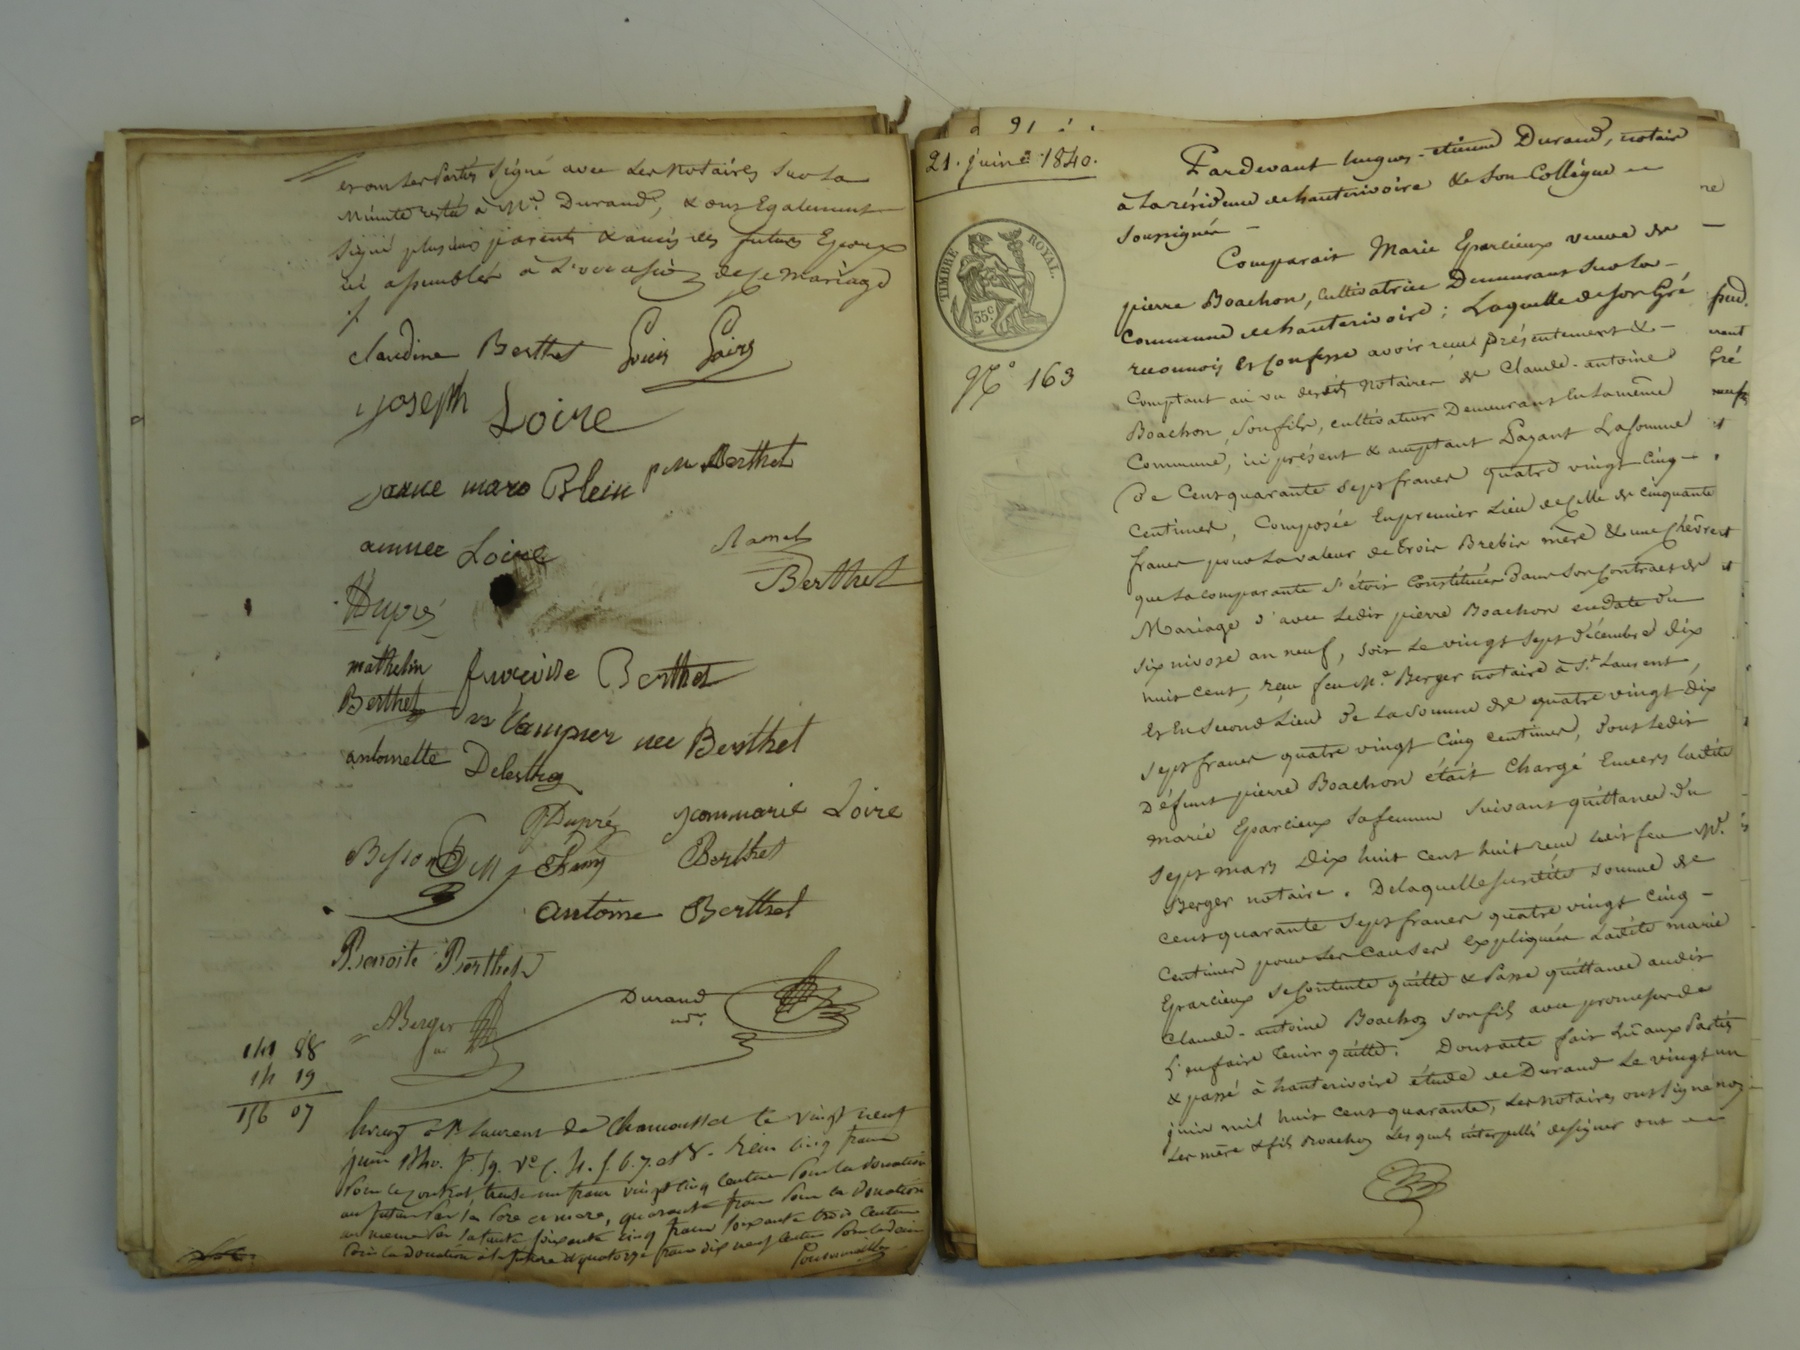 et ont les parties signé avec les notaires sur la
minute restée à Me. Durand, & ont Egalement
signé plusieurs parents & amis des futurs Epoux
ici assemblés à l'occasion de ce mariage
claudine Berthet Louis Loire
joseph Loire
janne marie Blein pierre Berthet
annee Loire
Ramel
Berthet
Dupré
mathelin Berthet
Berthet
Vampier nee Berthet
antoinette
Dupré janmarie Loire
Besson
Fany Berthet
antoine Berthet
Benoite Berthet
ABerger Durand
nre.
141 88
14 19
156 07
St Laurent de Chamousset le vingt neuf
juin 1840. fo. 59. vo c. 4. 5. 6. 7. et 8. Reçu cinq francs
pour le contrat, trente un francs vingt cinq centimes pour la donation
au futur par ses père et mère, quarante francs pour la donation
au même par sa tante soixante cinq francs soixante trois centimes
pour la donation à la future & quatorze francs dix neuf centimes pour le décime
91
21. juin 1840.
TIMBRE ROYAL.
35.c
No 163
Pardevant hugues-etienne Durand, notaire
à la résidence de hauterivoire & son Collègue
soussignés
Comparait Marie Eparcieux veuve de
pierre Boachon, cultivatrice Demeurant sur la
Commune de hauterivoire; Laquelle de son Gré
reconnois et Confesse avoir reçu présentement &
Comptant au vu desdits notaires de Claude-antoine
Boachon, son fils, cultivateur Demeurant en la même
Commune, ici présent & acceptant Payant La somme
De Cent quarante sept francs quatre vingt cinq
centimes, Composée En premier Lieu de celle de cinquante
francs pour la valeur de trois Brebis mère & une chèvre et
que la comparante s'étoit Constituée dans son Contrat de
Mariage d'avec ledit pierre Boachon en date du
six nivose an neuf, soit le vingt sept décembre dix
huit cent, reçu feu Me. Berger notaire à St. Laurent,
et En second Lieu De la somme de quatre vingt dix
sept francs quatre vingt cinq centimes, dont ledit
Défunt pierre Boachon était Chargé Envers ladite
marie Eparcieux sa femme suivant quittance du
sept mars Dix huit cent huit reçu ledit feu Me.
Berger notaire. De laquelle susdite somme de
cent quarante sept francs quatre vingt cinq
centimes pour les Causes expliquées ladite marie
Eparcieux se Contente quitte & Passe quittance audit
Claude-antoine Boachon son fils avec promesse de
L'en faire tenir quitte. Dont acte fait Lu aux Parties
& passé à hauterivoire étude de Durand Le vingt un
juin mil huit cent quarante, Les notaires ont signé non
Les mère & fils Boachon Lesquels interpellés de signer ont